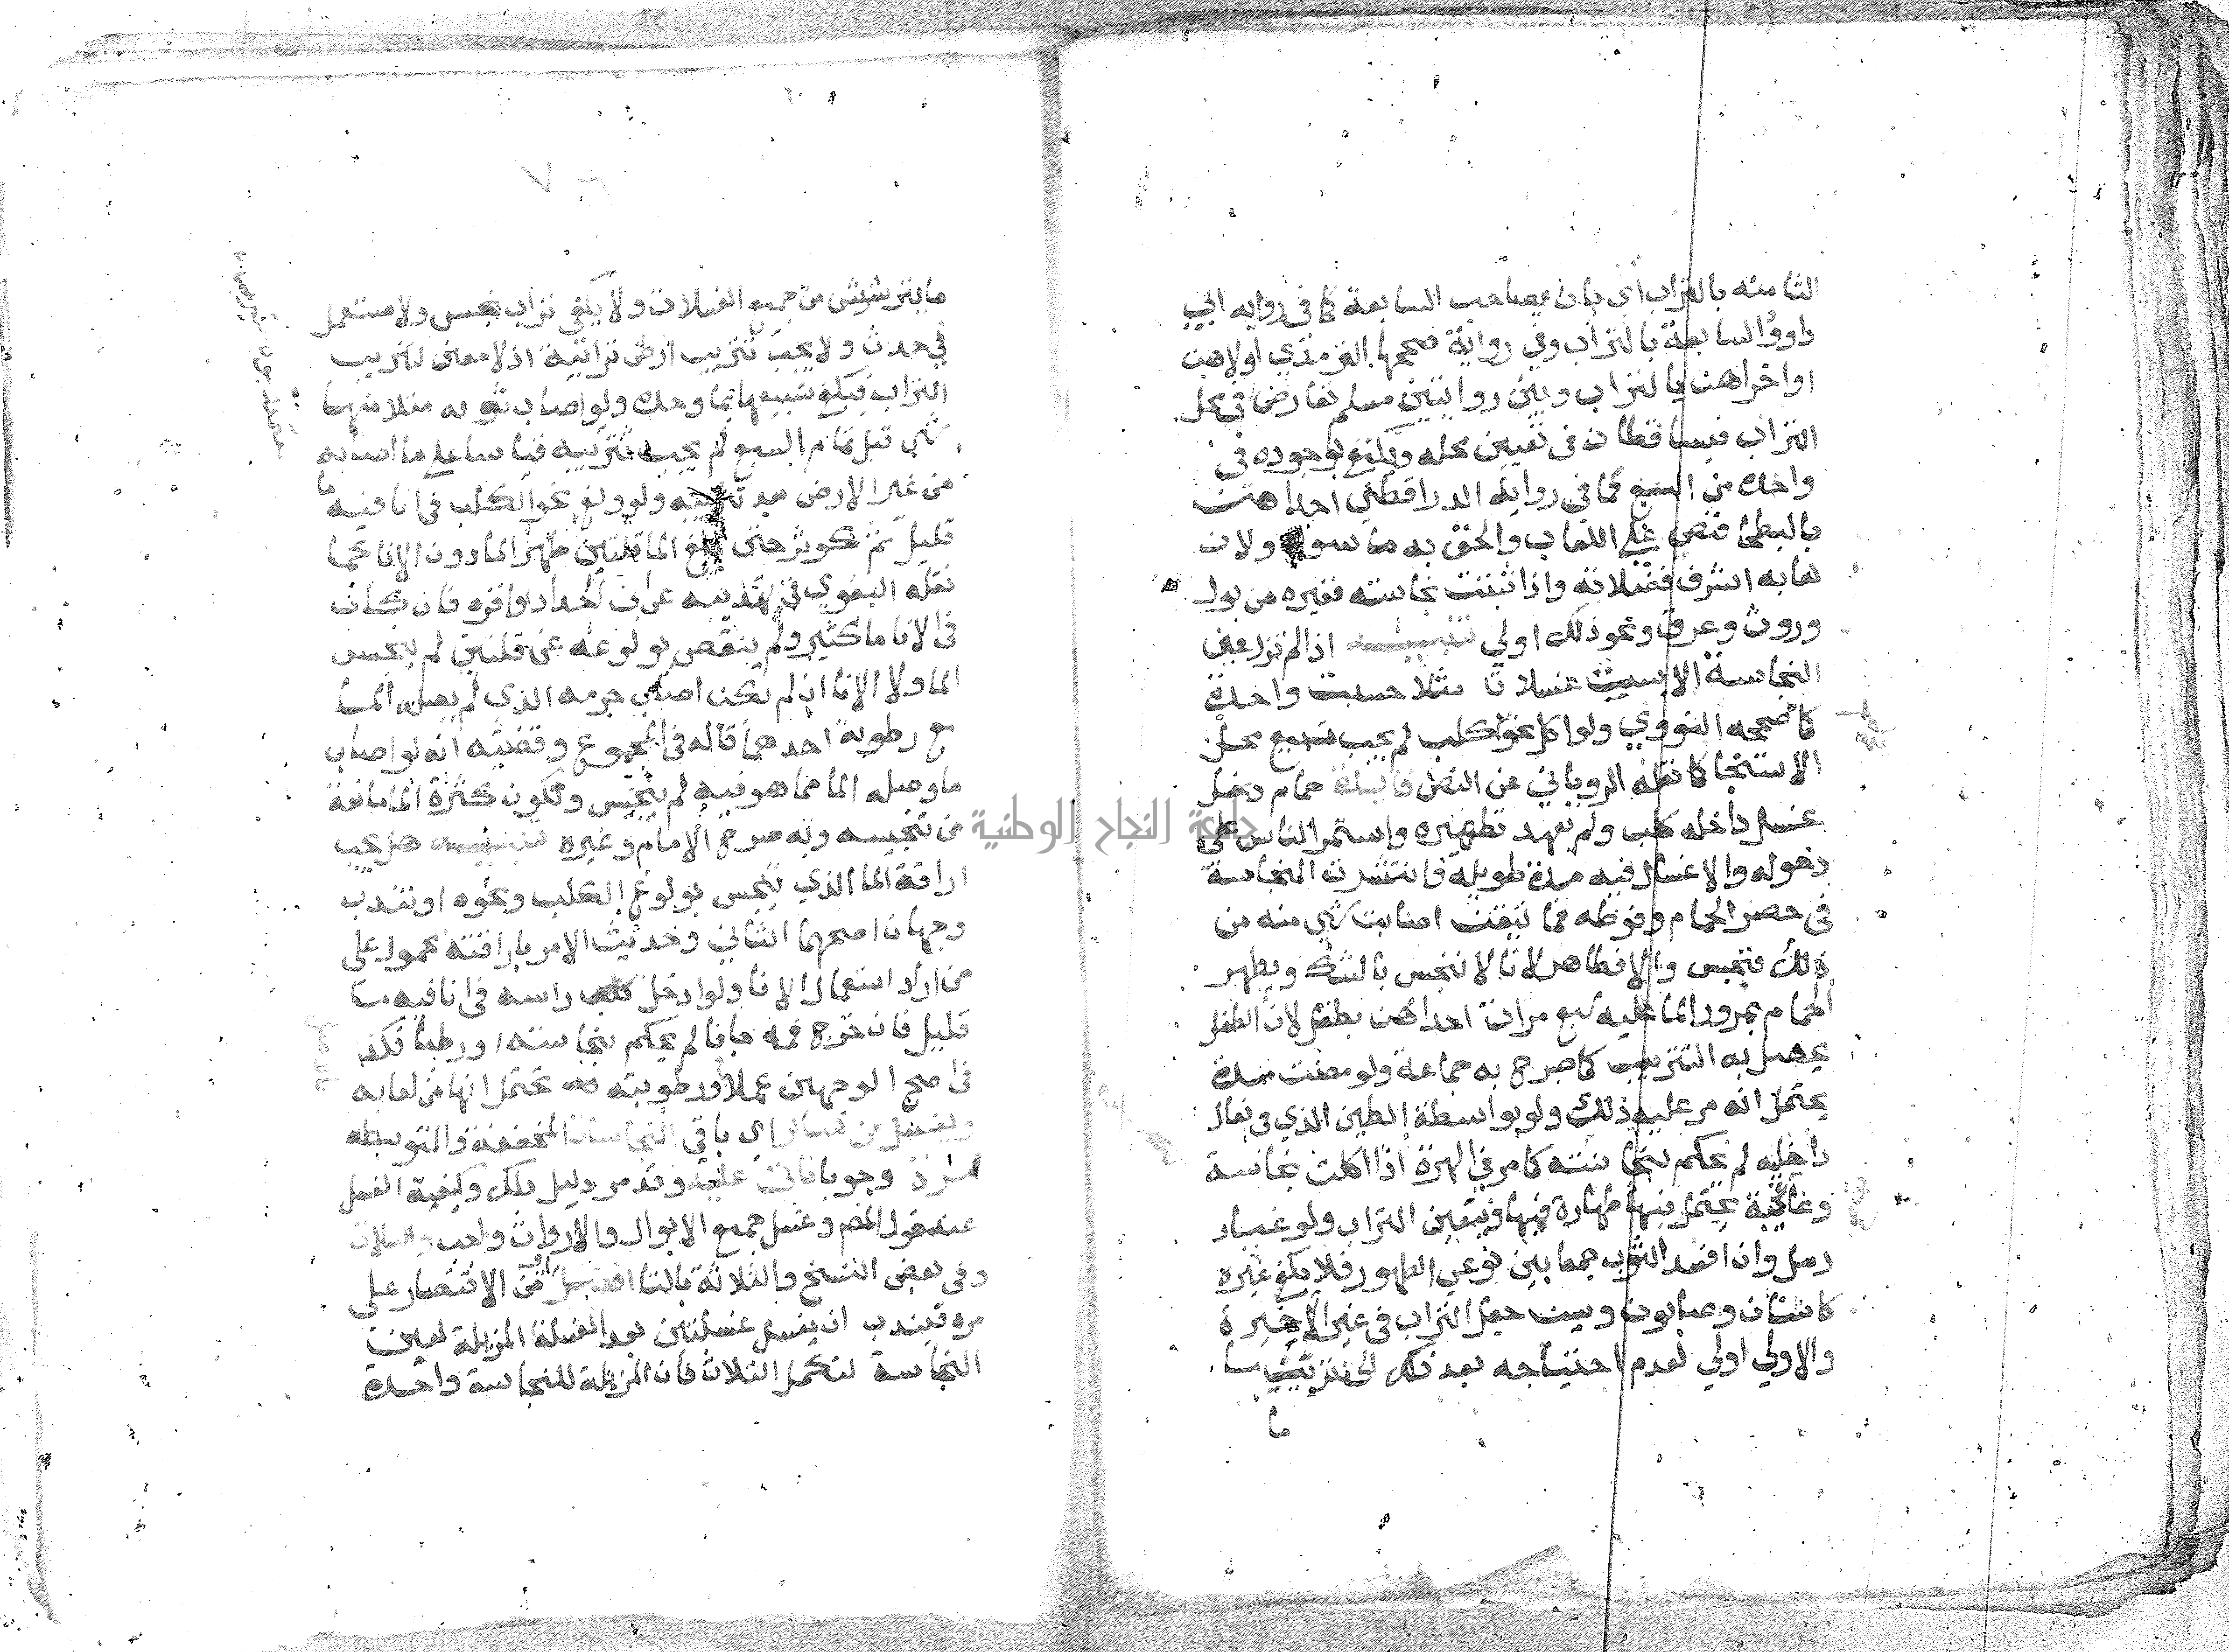 الثامنه بالتراب اى بان يصاحب السابعة كما فى روايه ابي
داوود السابعة بالتراب وفي رواية صححها الترمذي اولاهن
او اخراهن بالتراب وبين روايتين مسلم تعارض فى محل
التراب فيتساقطان فى تعيين محله ويكتفى بوجوده فى
واحده من السبع كما فى رواية الدراقطني احداهن
بالبطحا فنص على اللعاب والحق به ما سواه ولان
لعابه اشرف فضلاته واذا ثبتت نجاسته فغيره من بول
وروث وعرق ونحو ذلك اولي تنبيه اذا لم تزل عين
النجاسة الا بست غسلات مثلا حسبت واحدة
كما صححه النووي ولو اكل نحو كلب لم يجب تسبيع محل
الاستنجا كما نقله الروياني عن النص فايدة حمام دخل
غسل داخله كلب ولم يعهد تطهيره واستمر الناس على
دخوله والاغتسال فيه مدة طويلة فانتشرت النجاسة
فى حصر الحمام وفوطه فما تيقن اصابت شي منه من
ذلك فنجس والا فطاهر لانا لا ننجس بالشك ويطهر
الحمام بمرور الما عليه سبع مرات احداهن بطفل لان الطفل
يحصل به التتريب كما صرح به جماعة ولو مضت مدة
يحتمل انه مر عليه ذلك ولو بواسطة الطين الذي فى نعال
داخليه لم يحكم بنجاسته كما مر في الهرة اذا اكلت نجاسة
وغابت غيبة يحتمل فيها طهارة فيها ويتعين التراب ولو غبار
رمل وان افسد الثوب جمعا بين نوعي الطهور فلا يكفى غيره
كاشنان وصابون ويسن جعل التراب فى غير الاخيرة
والاولي اولي لعدم احتياجه بعد ذلك الى تتريب ما
ما
٧
ما يترشرش من جميع الغسلات ولا يكفي تراب نجس ولا مستعمل
في حدث ولا يجب تتريب ارض ترابية اذ لا معنى لتتريب
التراب فيكفي تسبيعها بما وحده ولو اصاب ثوبه مثلا منها
شي قبل تمام السبع لم يجب تتريبه قياسا على ما اصابه
من غير الارض بعد تتريبه ولو ولغ نحو الكلب فى انا فيه ما
قليل ثم كوثر حتى بلغ الما قلتين طهر الما دون الانا كما
نقله البغوي فى تهذيبه عن ابن الحداد واقره فان كان
فى الانا ما كثير ولم ينقص بولوغه عن قلتين لم ينجس
الما ولا الانا ان لم يكن اصاب جرمه الذي لم يصله الما
مع رطوبة احدهما قاله فى المجموع وقضيته انه لو اصاب
ما وصله الما مما هو فيه لم ينجس وتكون كثرة الما مانعة
من تنجيسه وبه صرح الامام وغيره تنبيه هل يجب
اراقة الما الذي تنجس بولوغ الكلب ونحوه او تندب
وجهان اصحهما الثاني وحديث الامر باراقته محمول على
من اراد استعمال الانا ولو ادخل كلب راسه فى انا فيه ما
قليل فان خرج فمه جافا لم يحكم بنجاسته او رطبا فكذا
فى اصح الوجهين عملا ورطوبته تحتمل انها من لعابه
ويغسل من ساير اي باقى النجاسات المخففة والمتوسطه
مرة وجوبا تاتى عليه وقد مر دليل ذلك وكيفية الغسل
عند قول المص وغسل جميع الابوال والارواث واجب والثلاث
وفى بعض النسخ والثلاثة بالتا افضل من الاقتصار على
مرة فيندب ان يغسل غسلتين بعد الغسلة المزيلة لعين
النجاسة لتكمل الثلاث فان المزيلة للنجاسة واحدة
جامعة النجاح الوطنية